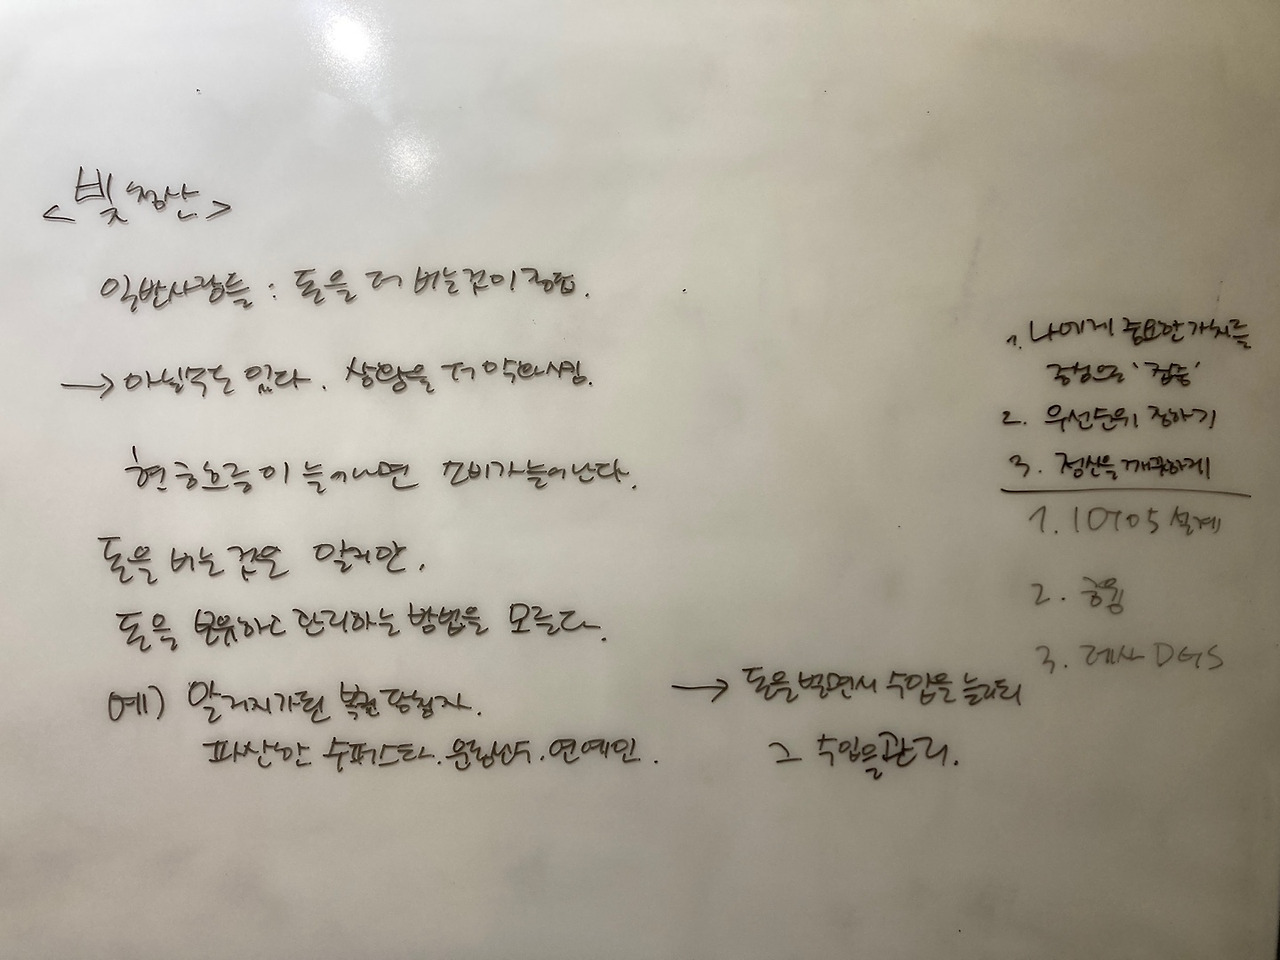 <빚 청산>
일반사람들 : 돈을 더 버는것이 정답.
→ 아닐수도 있다. 상황을 더 악화시킴.
현금흐름이 늘어나면 소비가늘어난다.
돈을 버는것은 알지만,
돈을 보유하고 관리하는 방법을 모른다.
예) 알거지가된 복권당첨자.
파산한 수퍼스타. 운동선수. 연예인.
→ 돈을 벌면서 수입을 늘리되
그 수입을 관리.
1. 나에게 중요한가치를
중심으로 '집중'
2. 우선순위 정하기
3. 정신을 깨끗하게
1. 10705 설계
2.
3. 레사 DGS